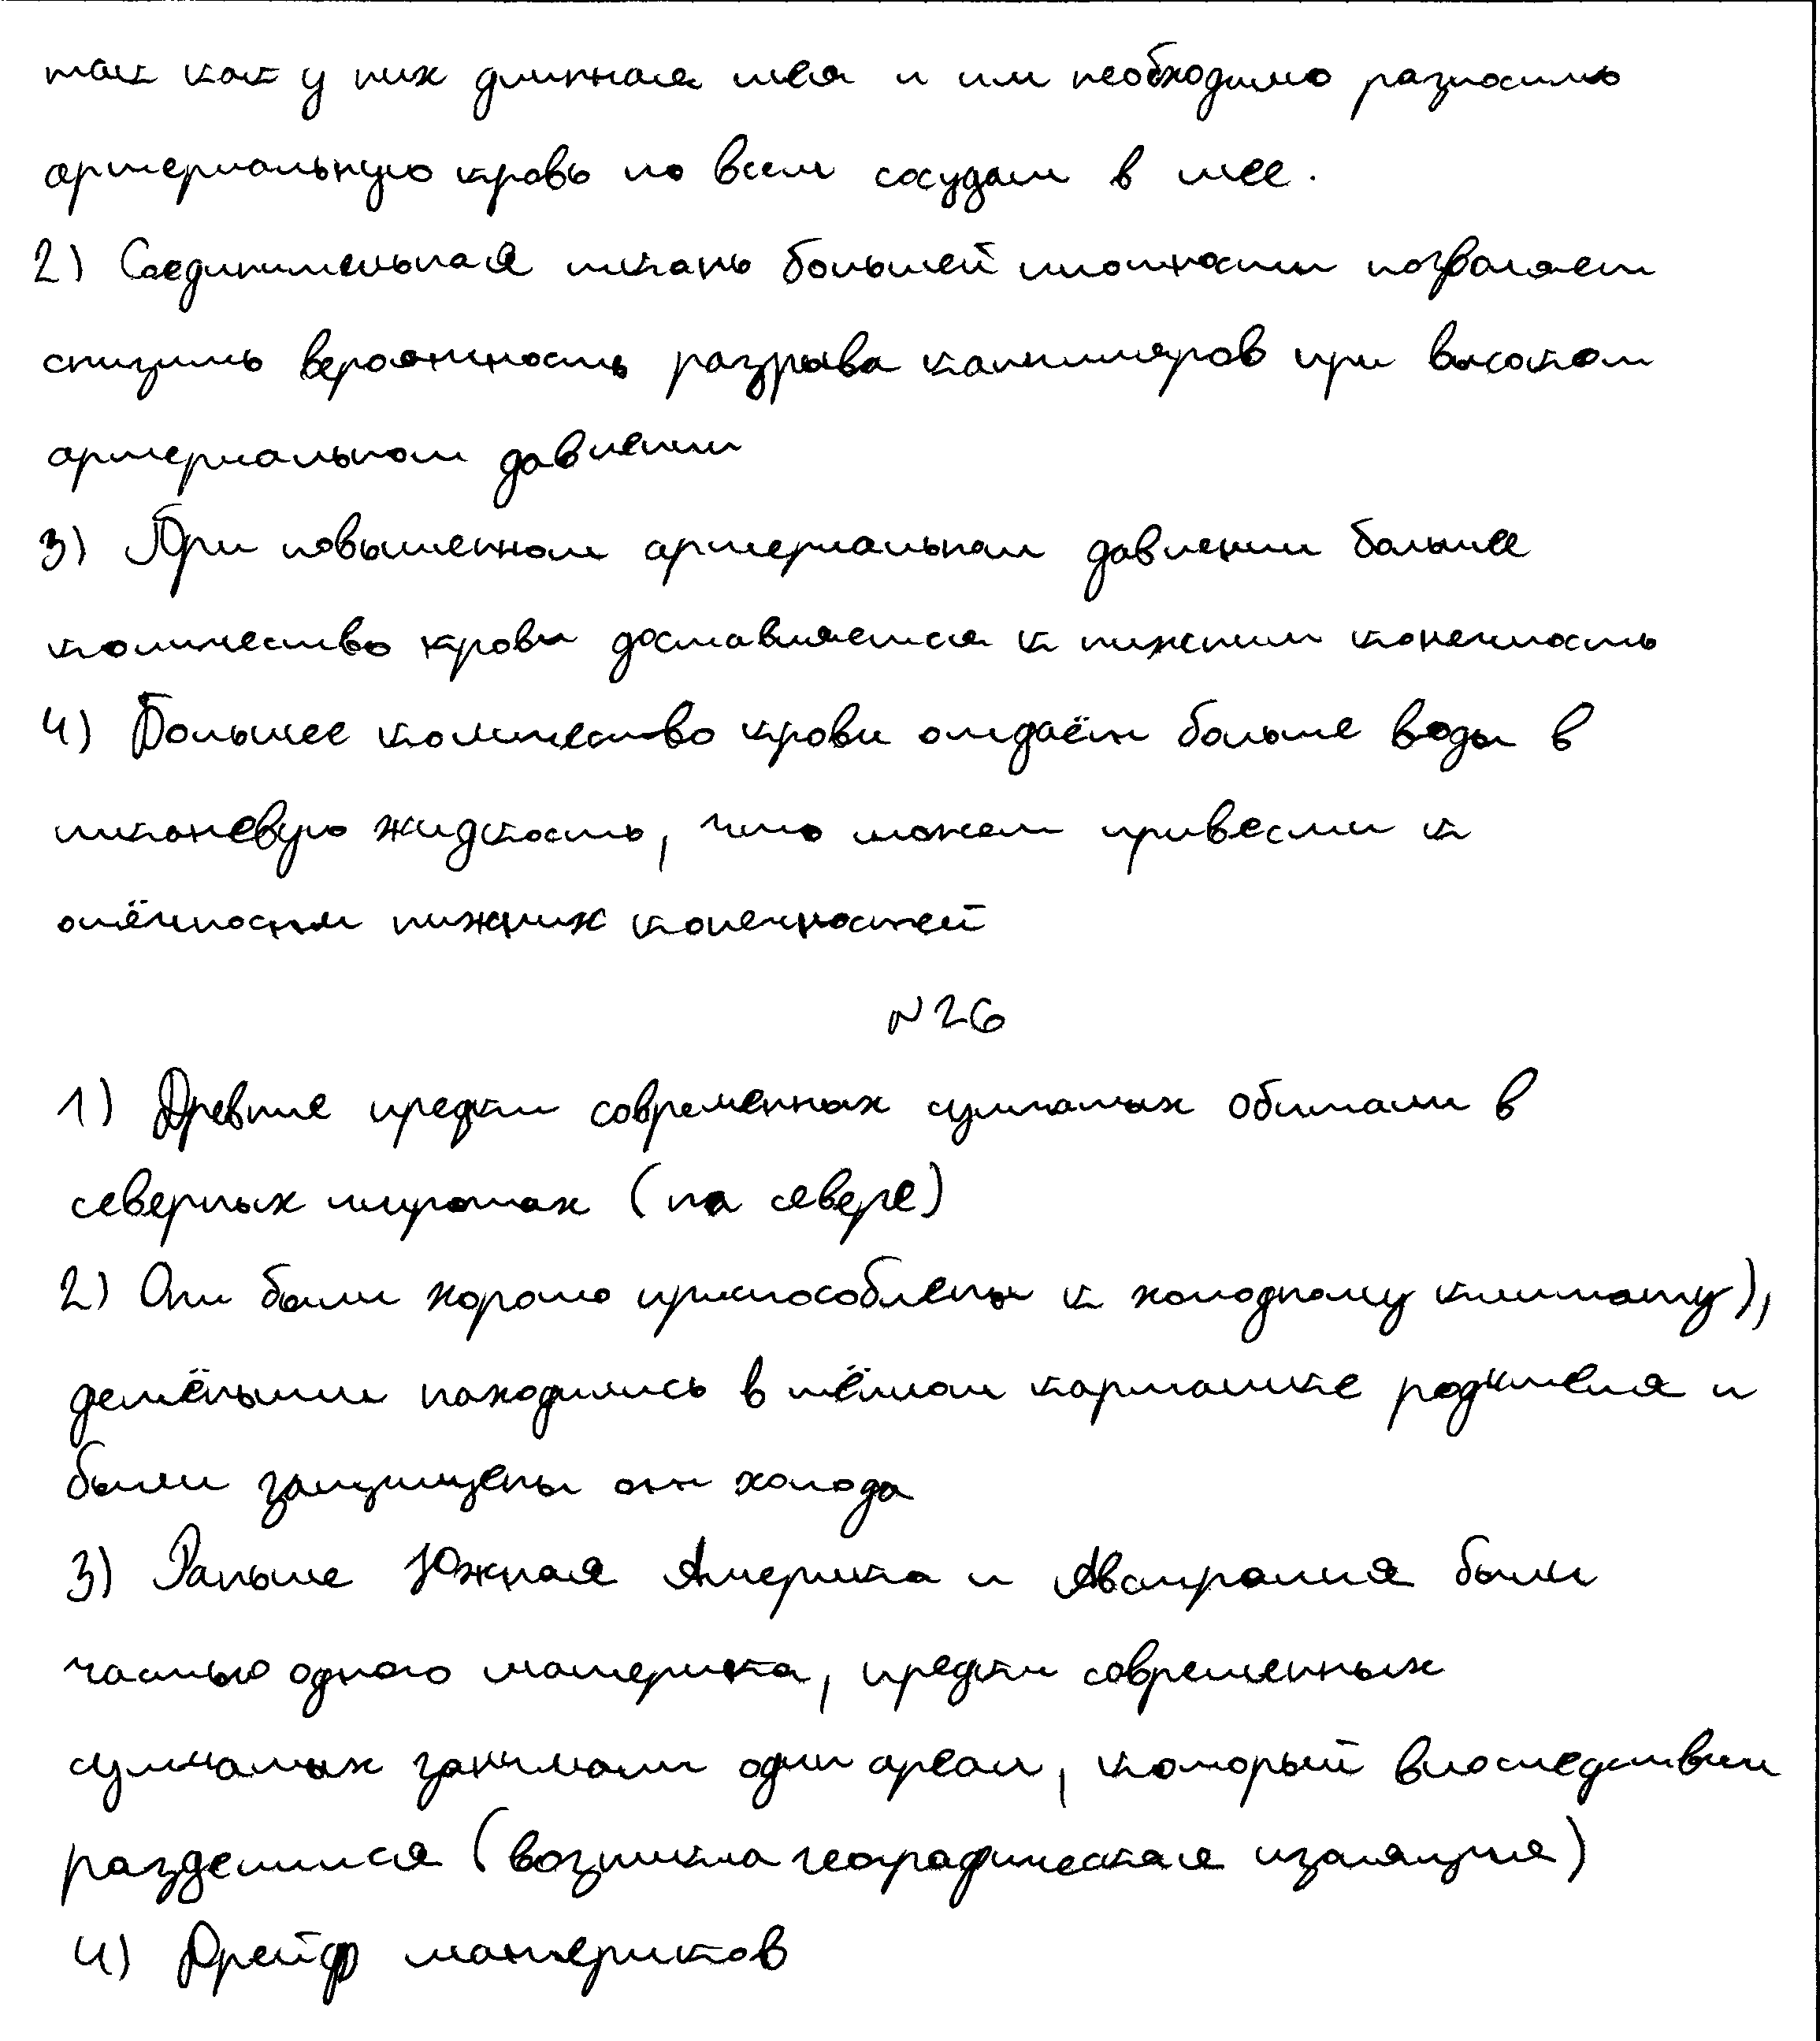 так как у них длинная шея и им необходимо разносить
артериальную кровь по всем сосудам в шее.
2) Соединительная ткань большей плотности позволяет
снизить вероятность разрыва капилляров при высоком
артериальном давлении
3) При повышенном артериальном давлении большее
количество крови доставляется к нижним конечность
4) Большее количество крови отдаёт больше воды в
тканевую жидкость, что может привести к
отёчностям нижних конечностей
№26
1) Древние предки современных сумчатых обитали в
северных широтах (на севере)
2) Они были хорошо приспособлены к холодному климату),
детёныши находились в тёплом кармашке родителя и
были защищены от холода
3) Раньше Южная Америка и Австралия были
частью одного материка, предки современных
сумчатых занимали один ареал, который впоследствии
разделился (возникла географическая изоляция)
4) Дрейф материков